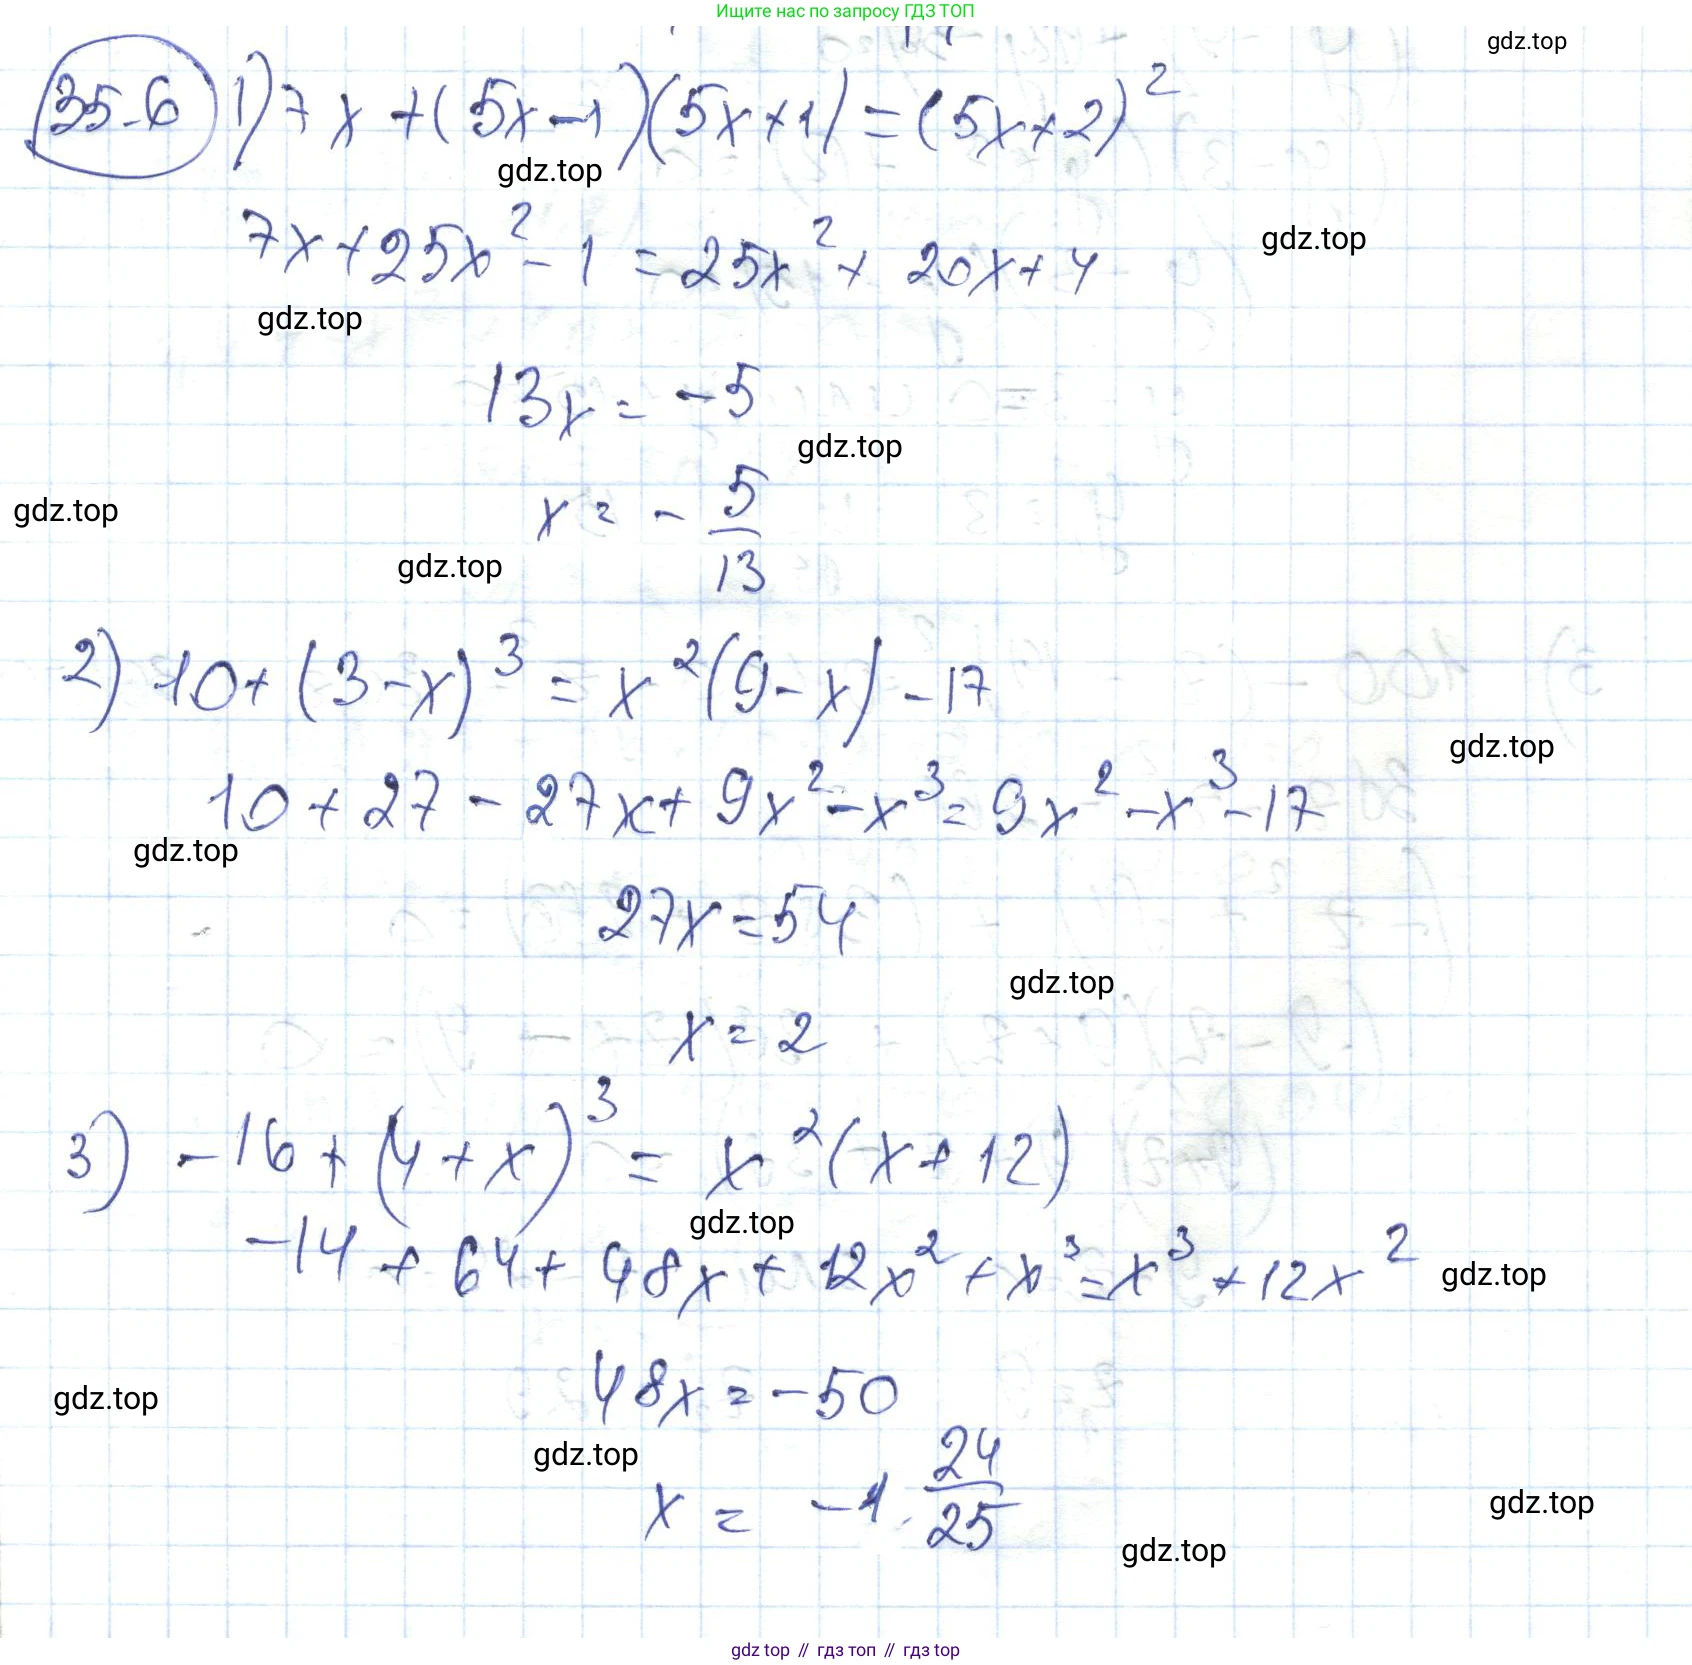 Ищите нас по запросу ГДЗ ТОП
gdz.top
35.6 1) 7x + (5x - 1)(5x + 1) = (5x + 2)²
gdz.top
7x + 25x² - 1 = 25x² + 20x + 4
gdz.top
gdz.top
13x = -5
gdz.top
x = - 5/13
gdz.top
gdz.top
2) 10 + (3 - x)³ = x²(9 - x) - 17
gdz.top
10 + 27 - 27x + 9x² - x³ = 9x² - x³ - 17
gdz.top
27x = 54
gdz.top
x = 2
3) -16 + (4 + x)³ = x²(x + 12)
gdz.top
-14 + 64 + 48x + 12x² + x³ = x³ + 12x²
gdz.top
48x = -50
gdz.top
gdz.top
x = -1 24/25
gdz.top
gdz.top
gdz top // гдз топ // гдз top